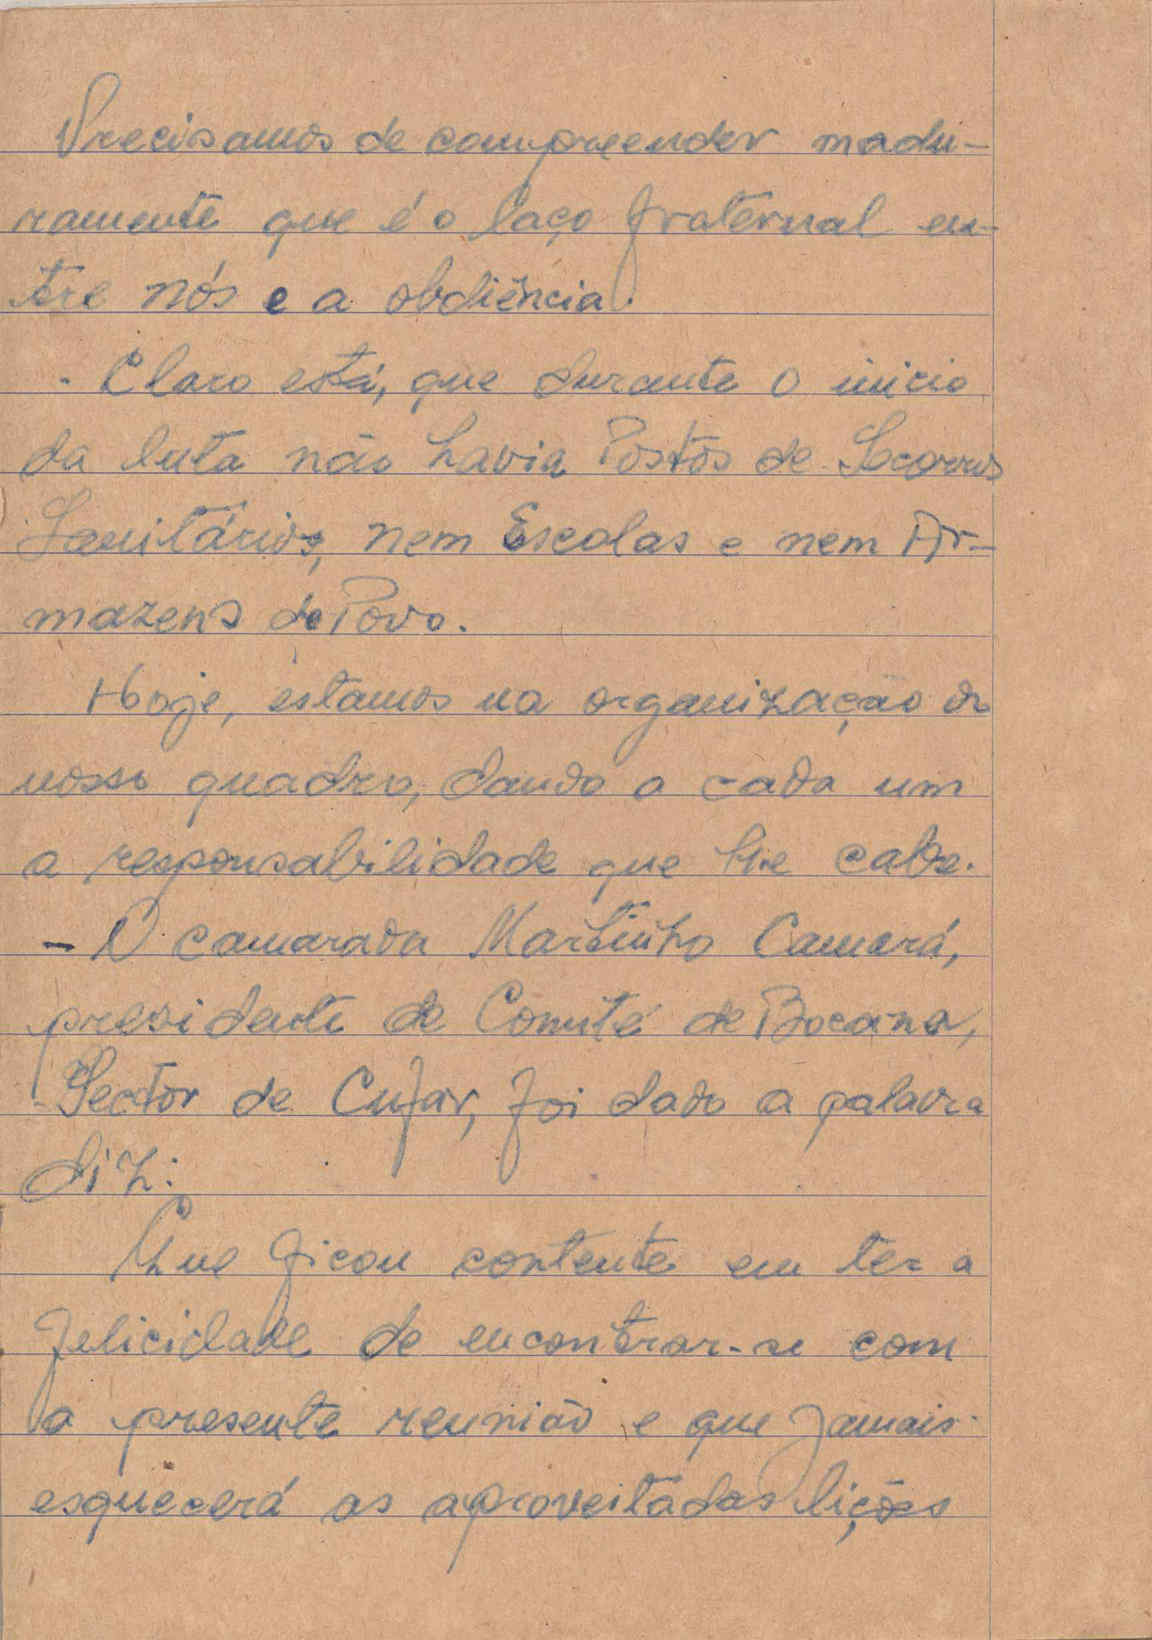 Precisamos de compreender madu-
ramente que é o laço fraternal en-
tre nós e a obdiência.
- Claro está, que durante o inicio
da luta não havia Postos de Socorros
Sanitários, nem Escolas e nem Ar-
mazens do Povo.
Hoje, estamos na organização do
nosso quadro, dando a cada um
a responsabilidade que lhe cabe.
- O camarada Martinho Camará,
presidente de Comité de Bocana,
Sector de Cufar, foi dado a palavra
diz:
Que ficou contente em ter a
felicidade de encontrar-se com
a presente reunião e que jamais
esquecerá as aproveitadas lições